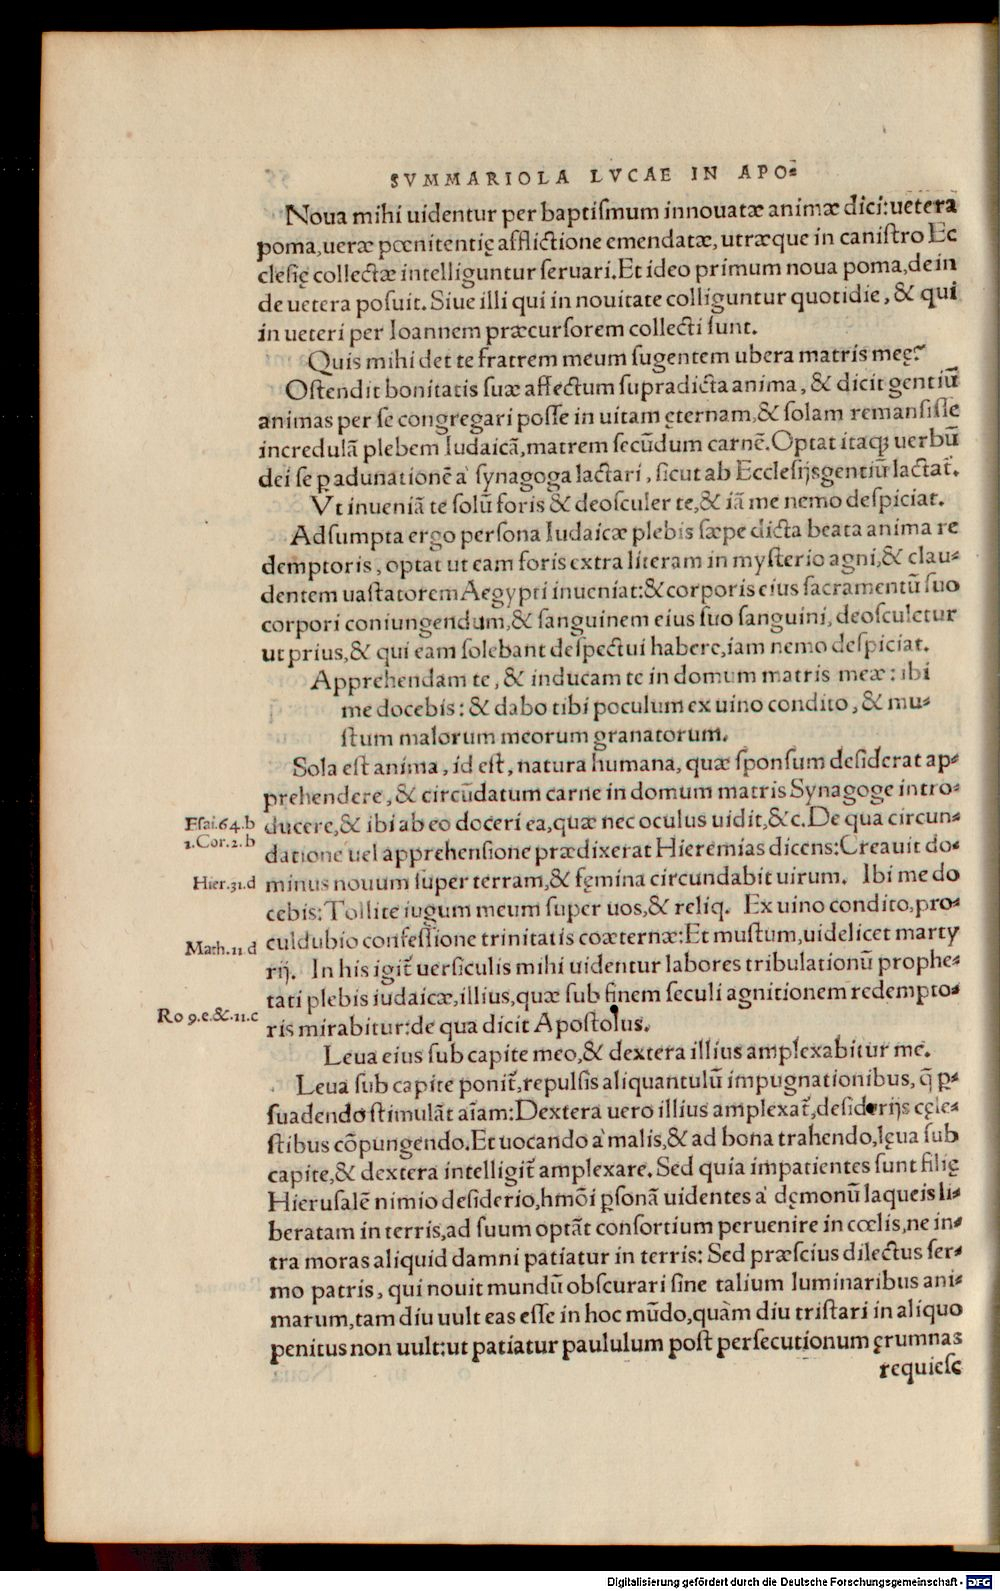 SVMMARIOLA LVCAE IN APO⸗
Noua mihi uidentur per baptiſmum innouatæ animæ dici: uetera
poma, ueræ pœnitentię afflictione emendatæ, utræque in caniſtro Ec
cleſię collectæ intelliguntur ſeruari. Et ideo primum noua poma, dein
de uetera poſuit. Siue illi qui in nouitate colliguntur quotidie, & qui
in ueteri per Ioannem præcurſorem collecti ſunt.
Quis mihi det te fratrem meum ſugentem ubera matris meę?
Oſtendit bonitatis ſuæ affectum ſupradicta anima, & dicit gentiū
animas per ſe congregari poſſe in uitam ęternam, & ſolam remanſiſſe
incredulā plebem Iudaicā, matrem ſecūdum carnē. Optat itaq; uerbū
dei ſe ꝑ adunationē à ſynagoga lactari, ſicut ab Eccleſijs gentiū lactat̄.
Vt inueniā te ſolū foris & deoſculer te, & iā me nemo deſpiciat.
Adſumpta ergo perſona Iudaicæ plebis ſæpe dicta beata anima re
demptoris, optat ut eam foris extra literam in myſterio agni, & clau⸗
dentem uaſtatorem Aegypti inueniat: & corporis eius ſacramentū ſuo
corpori coniungendum, & ſanguinem eius ſuo ſanguini, deoſculetur
ut prius, & qui eam ſolebant deſpectui habere, iam nemo deſpiciat.
Apprehendam te, & inducam te in domum matris meæ: ibi
me docebis: & dabo tibi poculum ex uino condito, & mu⸗
ſtum malorum meorum granatorum.
Sola eſt anima, id eſt, natura humana, quæ ſponſum deſiderat ap⸗
prehendere, & circūdatum carne in domum matris Synagoge intro⸗
Eſai. 64. b ducere, & ibi ab eo doceri ea, quæ nec oculus uidit, &c. De qua circun⸗
1. Cor. 2. b datione uel apprehenſione prædixerat Hieremias dicens: Creauit do⸗
Hier. 31. d minus nouum ſuper terram, & fęmina circundabit uirum. Ibi me do
cebis: Tollite iugum meum ſuper uos, & reliq. Ex uino condito, pro⸗
Math. 11 d culdubio confeſſione trinitatis coæternæ: Et muſtum, uidelicet marty
rij. In his igit̄ uerſiculis mihi uidentur labores tribulationū prophe⸗
tati plebis iudaicæ, illius, quæ ſub finem ſeculi agnitionem redempto⸗
Ro 9. e. &. 11. c ris mirabitur: de qua dicit Apoſtolus.
Leua eius ſub capite meo, & dextera illius amplexabitur me.
Leua ſub capite ponit̄, repulſis aliquantulū impugnationibus, q̄ ꝑ⸗
ſuadendo ſtimulāt aīam: Dextera uero illius amplexat̄, deſiderijs cęle⸗
ſtibus cōpungendo. Et uocando à malis, & ad bona trahendo, lęua ſub
capite, & dextera intelligit̄ amplexare. Sed quia impatientes ſunt filię
Hieruſalē nimio deſiderio, hmōi ꝑſonā uidentes à dęmonū laqueis li⸗
beratam in terris, ad ſuum optāt conſortium peruenire in cœlis, ne in⸗
tra moras aliquid damni patiatur in terris: Sed præſcius dilectus ſer⸗
mo patris, qui nouit mundū obſcurari ſine talium luminaribus ani⸗
marum, tam diu uult eas eſſe in hoc mūdo, quàm diu triſtari in aliquo
penitus non uult: ut patiatur paululum poſt perſecutionum ęrumnas
requieſc
Digitalisierung gefördert durch die Deutsche Forschungsgemeinschaft - DFG